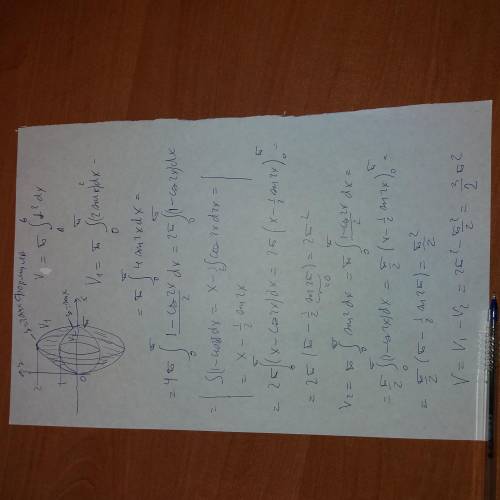 y = 2 sin x
y = sin x
V₁
V₂
2
0
π
x
формула
V = π ∫ₐᵇ f² dx
V₁ = π ∫₀^π (2 sin x)² dx =
= π ∫₀^π 4 sin² x dx =
= 4π ∫₀^π (1 - cos 2x)/2 dx = 2π ∫₀^π (1 - cos 2x) dx
= | ∫(1 - cos 2x) dx = x - ½ ∫ cos 2x d2x = |
= x - ½ sin 2x
= 2π ∫₀^π (x - cos 2x) dx = 2π (x - ½ sin 2x)₀^π =
= 2π (π - ½ sin 2π) = 2π²
= 0
V₂ = π ∫₀^π sin² x dx = π ∫₀^π (1 - cos 2x)/2 dx =
= π/2 ∫₀^π (1 - cos 2x) dx = π/2 (x - ½ sin 2x)₀^π =
= π/2 (π - ½ sin 2π) = π²/2
V = V₁ - V₂ = 2π² - π²/2 = 3/2 π²